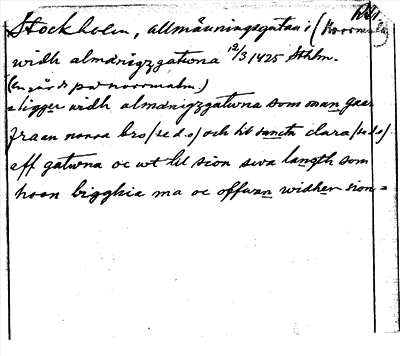 Stockholm, allmänningsgatan i (Norrmalm)
widh almänigzgatwna 12/3 1425 Sthlm.
(en gård på norrmalm)
= ligger widh almänigzgatwna som man gaar
fraan norra bro (se d.o) och til sancta clara (se d.o)
aff gatwna oc wt til sion swa langth som
hoon bigghia ma oc offwan widher sion =